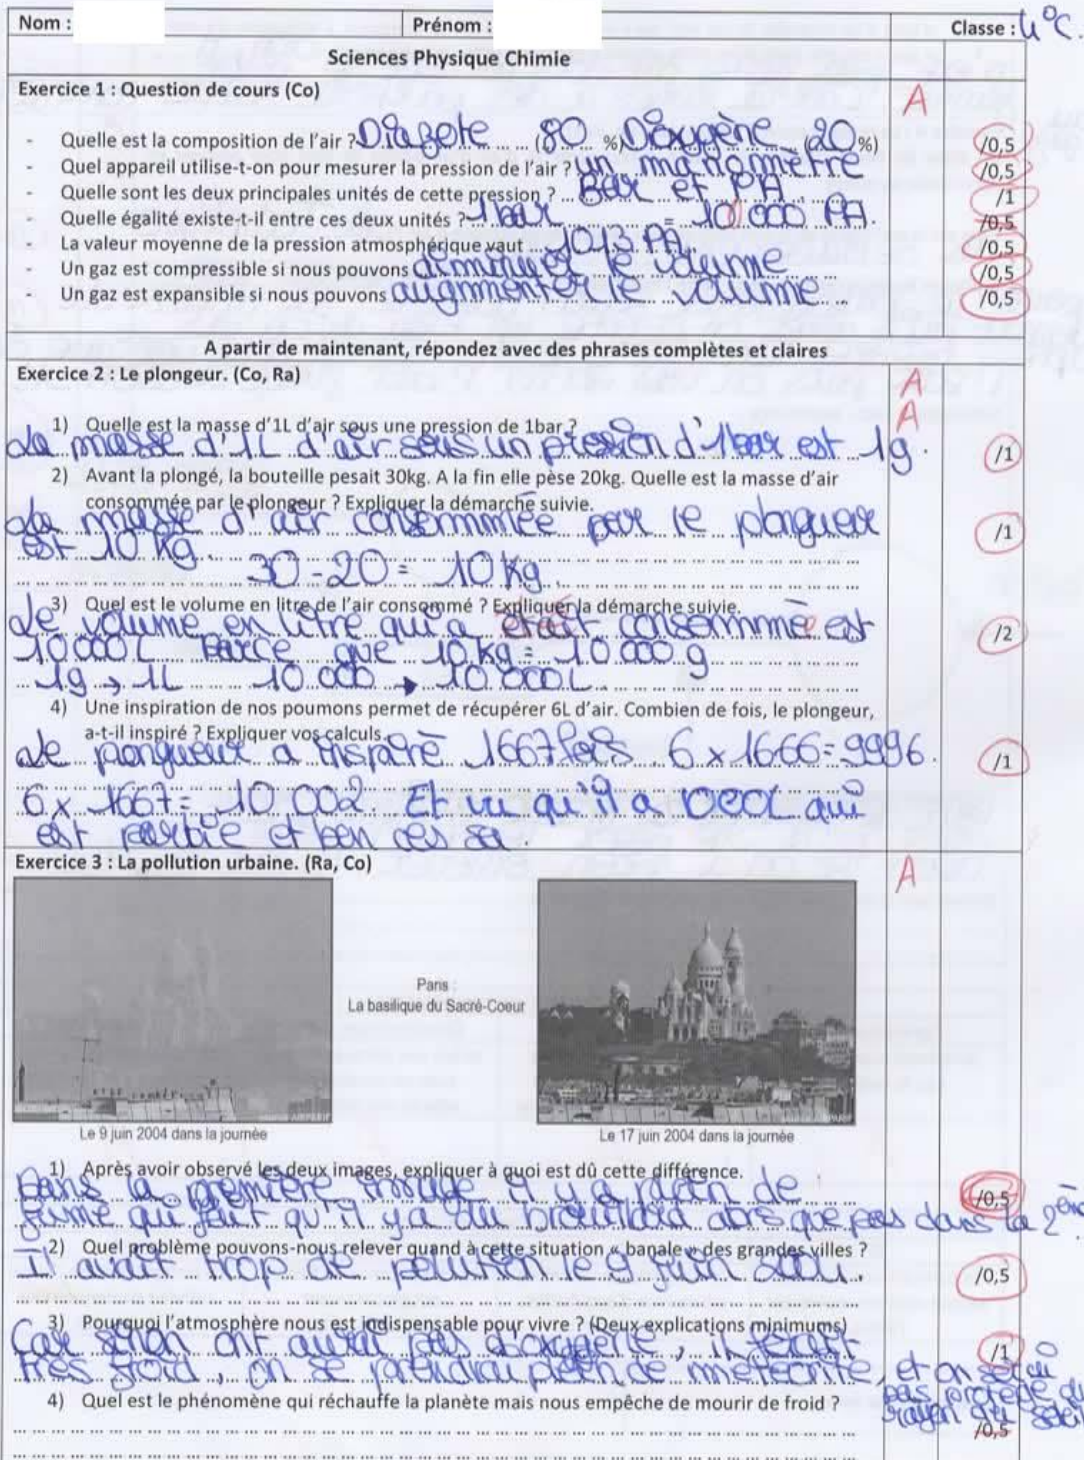 Nom : Prénom : Classe : 4°C.
Sciences Physique Chimie
Exercice 1 : Question de cours (Co) A
- Quelle est la composition de l'air ? Diazote (80 %) Dioxygène (20 %) /0,5
- Quel appareil utilise-t-on pour mesurer la pression de l'air ? un manomètre /0,5
- Quelle sont les deux principales unités de cette pression ? Bar et PA /1
- Quelle égalité existe-t-il entre ces deux unités ? 1 bar = 10 000 PA. /0,5
- La valeur moyenne de la pression atmosphérique vaut 1013 PA /0,5
- Un gaz est compressible si nous pouvons diminuer le volume /0,5
- Un gaz est expansible si nous pouvons augmmenter le volume /0,5
A partir de maintenant, répondez avec des phrases complètes et claires
Exercice 2 : Le plongeur. (Co, Ra) A
A
1) Quelle est la masse d'1L d'air sous une pression de 1bar ?
La masse d'1L d'air sous un pression d'1bar est 1g. /1
2) Avant la plongé, la bouteille pesait 30kg. A la fin elle pèse 20kg. Quelle est la masse d'air
consommée par le plongeur ? Expliquer la démarche suivie.
La masse d'air consommée par le plongueur /1
est 10 kg.
30 - 20 = 10 kg
3) Quel est le volume en litre de l'air consommé ? Expliquer la démarche suivie.
Le volume en litre qui a était consommé est /2
10 000 L Parce que 10 kg = 10 000 g
1g → 1L 10 000 → 10 000L
4) Une inspiration de nos poumons permet de récupérer 6L d'air. Combien de fois, le plongeur,
a-t-il inspiré ? Expliquer vos calculs.
Le plongueur a inspiré 1667 fois 6 x 1666 = 9996. /1
6 x 1667 = 10 002. Et vu qu'il a qui
est et ben ces sa.
Exercice 3 : La pollution urbaine. (Ra, Co) A
Paris :
La basilique du Sacré-Coeur
Le 9 juin 2004 dans la journée Le 17 juin 2004 dans la journée
1) Après avoir observé les deux images, expliquer à quoi est dû cette différence.
Dans la première image il y a plein de /0,5
fumé qui fait qu'il y a du brouillard alors que pas dans la 2ème.
2) Quel problème pouvons-nous relever quand à cette situation « banale » des grandes villes ?
Il avait trop de pelution le 9 juin 2004. /0,5
3) Pourquoi l'atmosphère nous est indispensable pour vivre ? (Deux explications minimums)
Car sinon ont aurai pas d'oxygène, il ferait /1
très froid, on se prendrai plein de météorite, et on serai
pas protégé du
4) Quel est le phénomène qui réchauffe la planète mais nous empêche de mourir de froid ?
rayon du soleil
/0,5